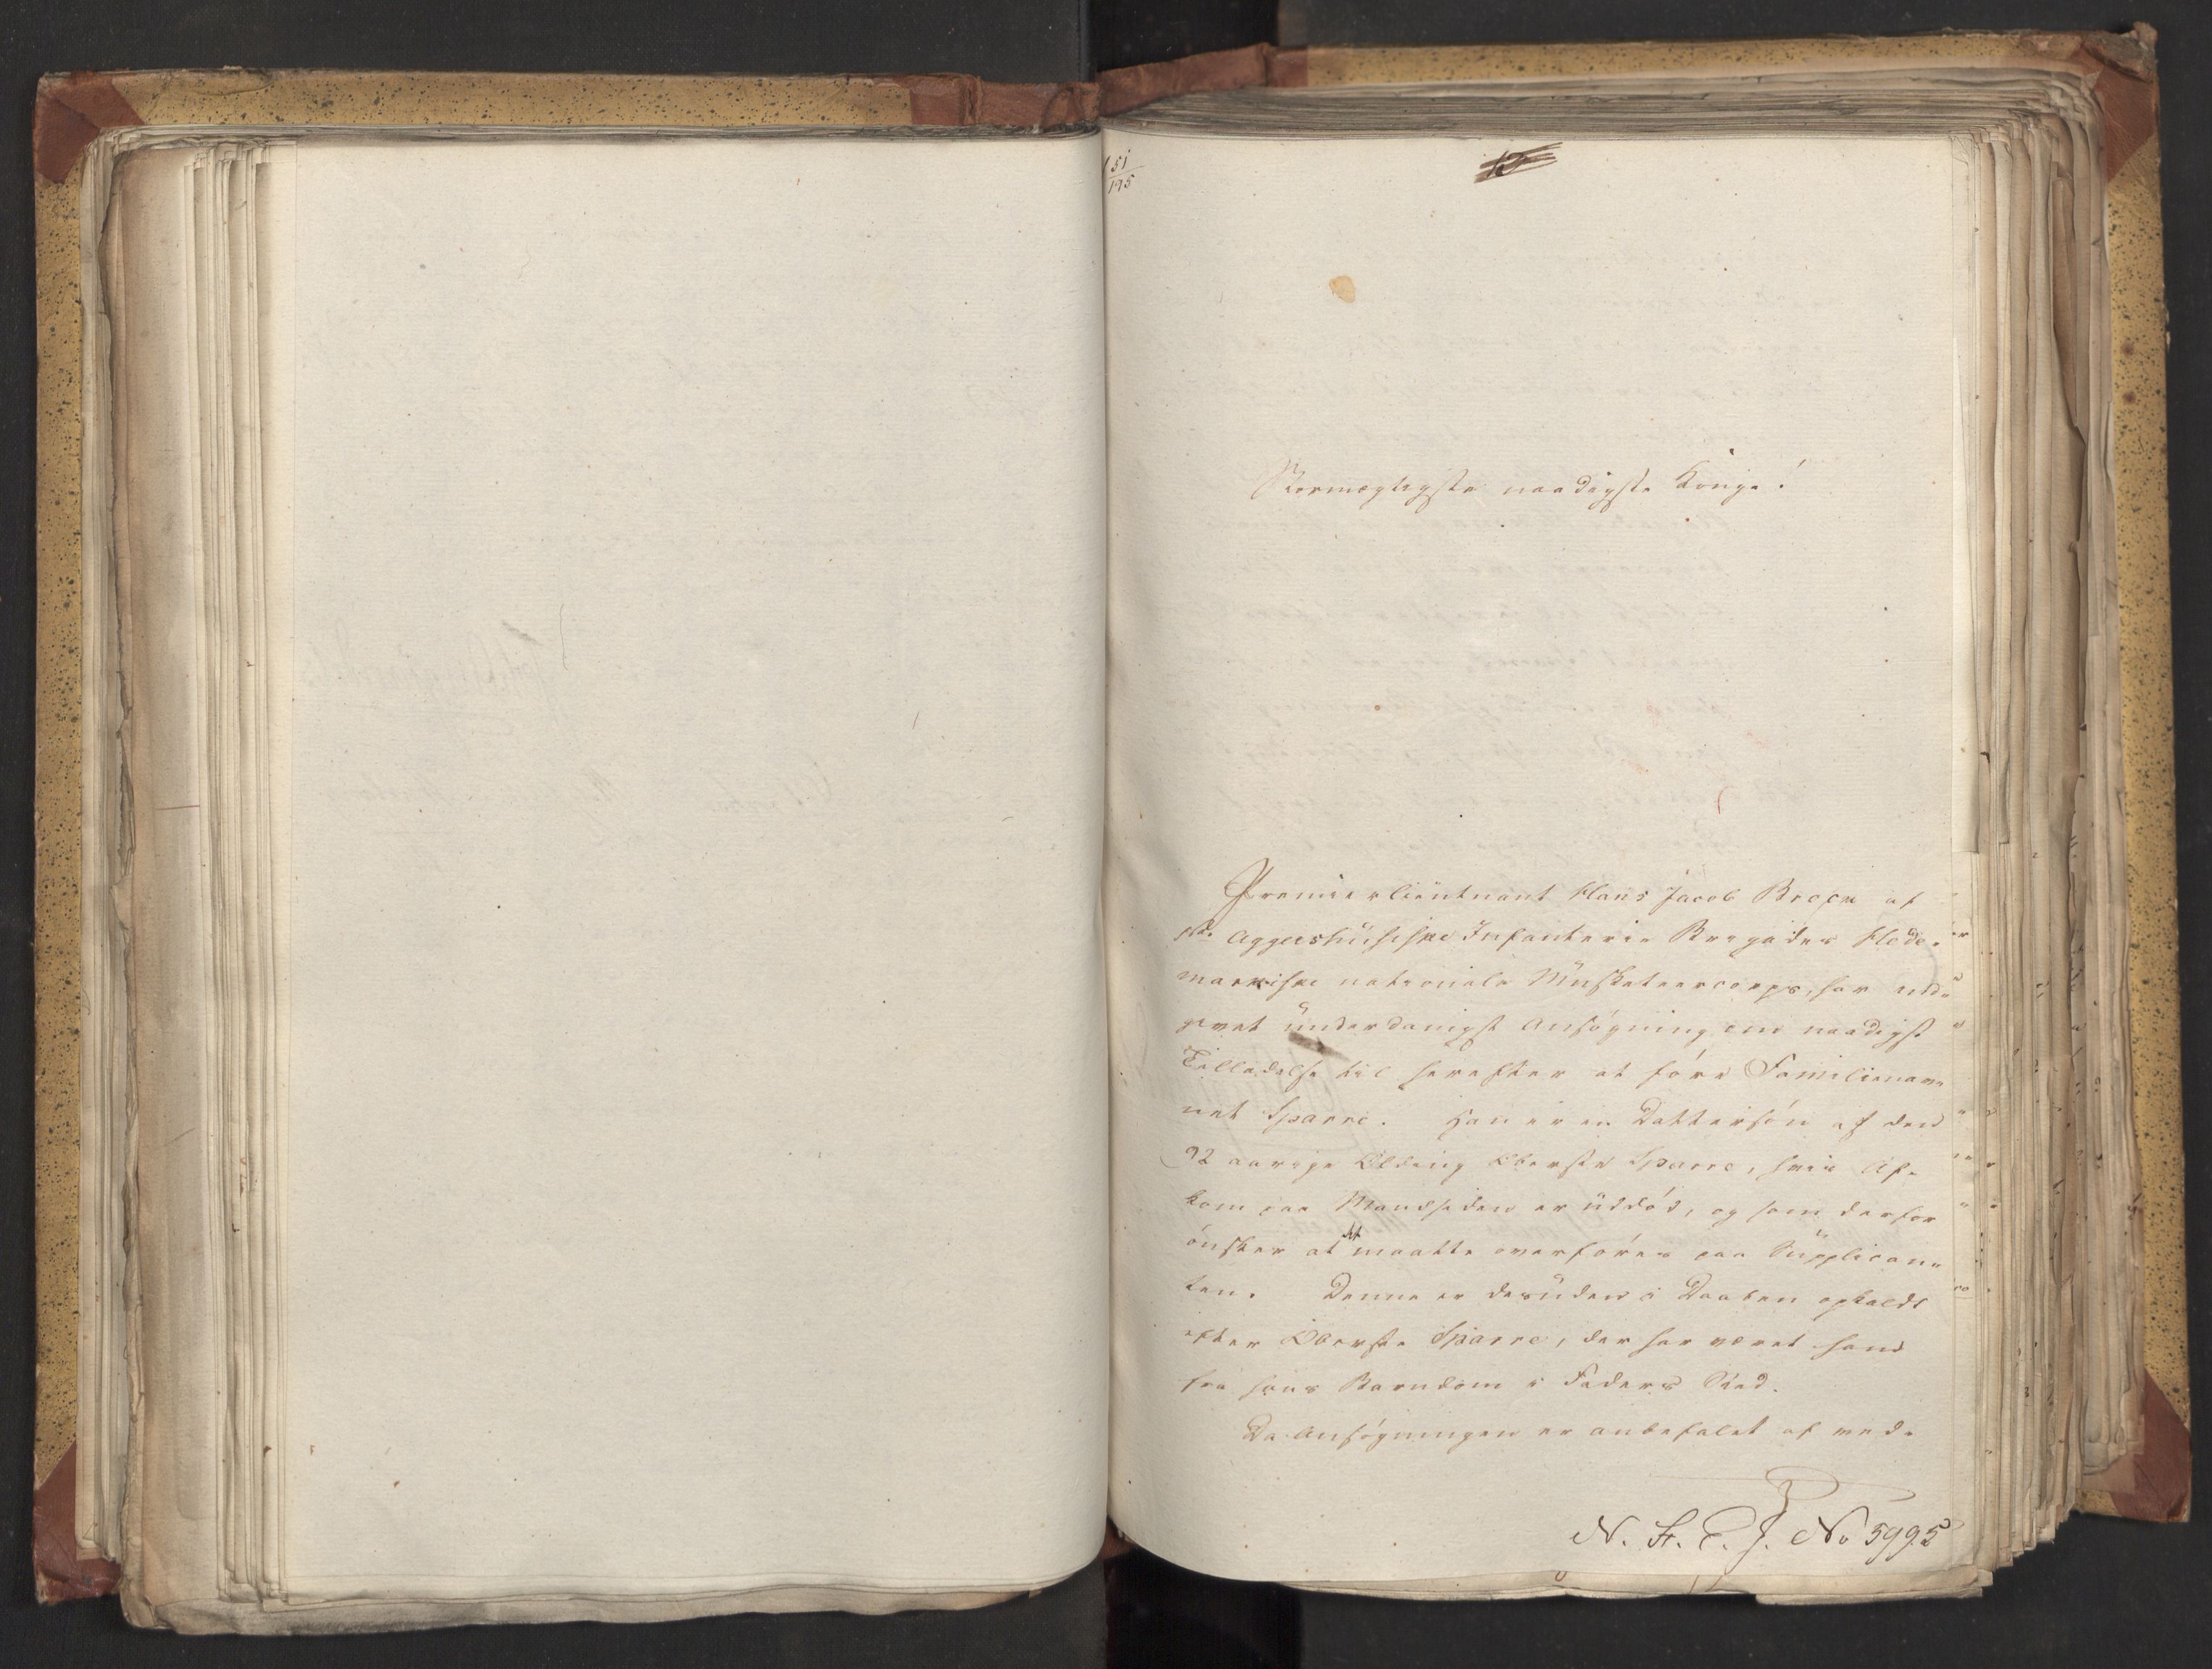 51
195
Stormægtigste naadigste Konge!
Premierlieutnant Hans Jacob af
1ste Aggershusiske Infanterie Brigades Hede-
markiske nationale Musketeercorps, har ind-
givet underdanigst Ansøgning om naadigst
Tilladelse til herefter at føre Familienav-
net Sparre. Han er en Dattersøn af den
92 aarige Olding Oberste Sparre, hvis Af-
kom paa Mandsiden er uddød, og som derfor
ønsker at Nt maatte overføres paa Supplican-
ten. Denne er desuden i Daaben opkaldt
efter Oberste Sparre, der har været ham
fra hans Barndom i Faders Sted.
Da Ansøgningen er anbefalet af ved-
N. F. C. J. No 5995